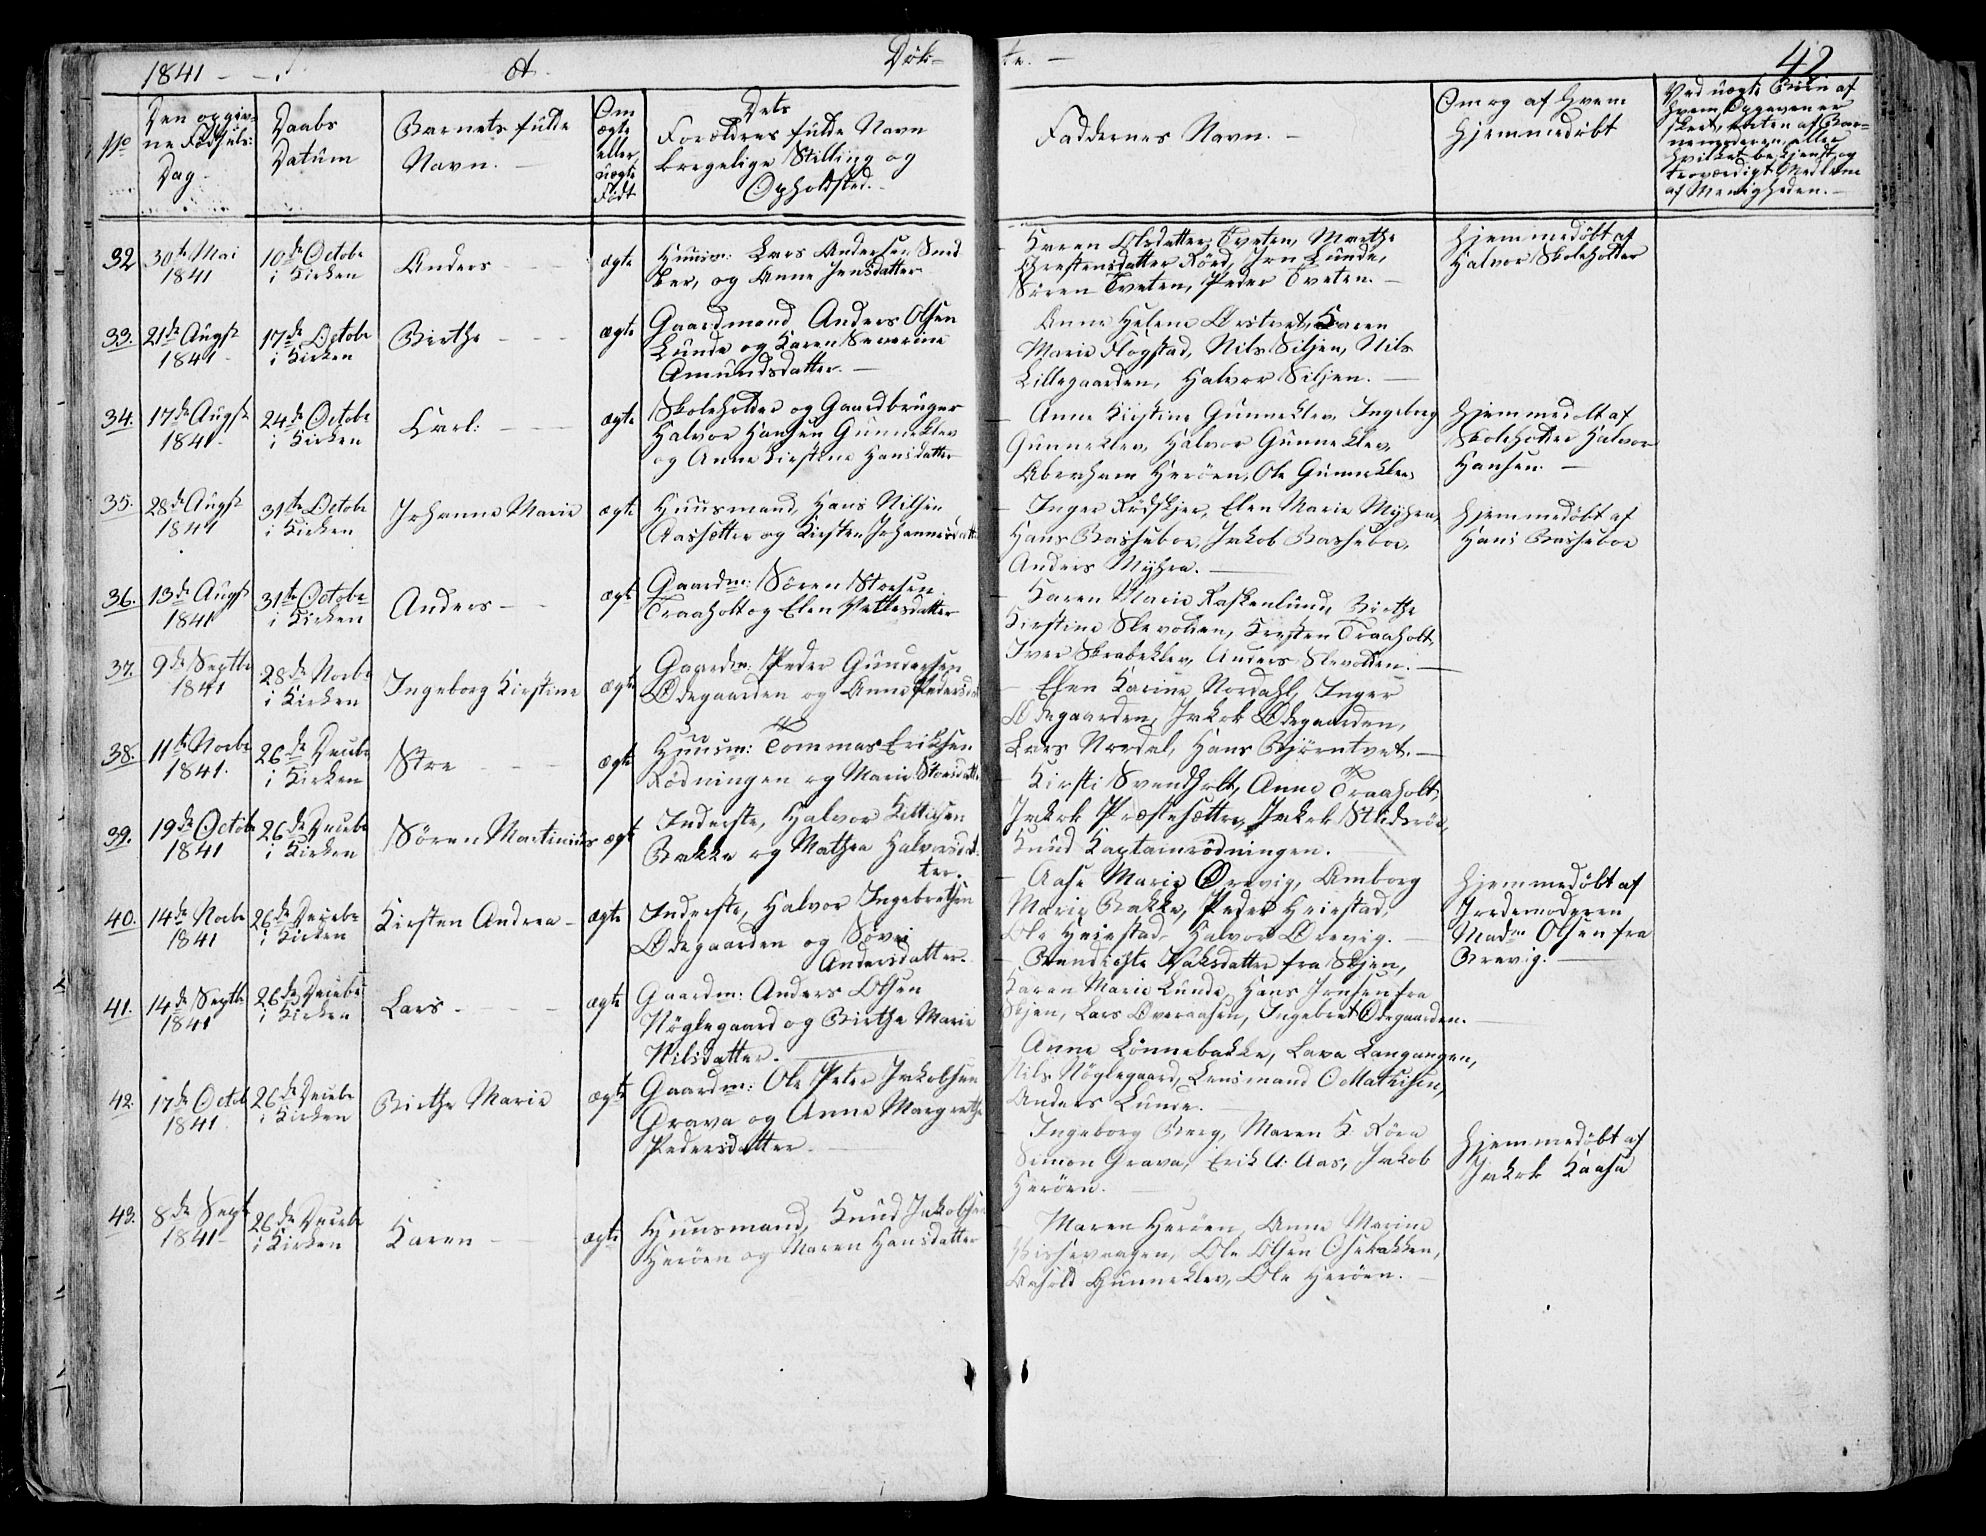 1841
Døb-
te.
42
No
Den opgiv-
ne Fødsels:
Dag.
Daabs
Datum
Barnets fulde
Navn.
Om
ægte
eller
uægte
Født
Dets
Forældres fulde Navn
borgelige Stilling og
Opholdsted.
Faddernes Navn.
Om og af hvem
hjemmedøbt
Ved uægte Børn af
hvem Opgaven er
skeet, enten af Bar-
nemoderen eller
hvilket bekjendt og
troværdigt Medlem
af Menigheden.
32
30te Mai
1841
10de Octobr
i Kirken
Anders
ægte
Huusm: Lars Andersen
og Anne Jensdatter
Karen Olsdatter Tveten, Marthe
Chrestensdatter Röra, Jon Lunde,
Sören Tveten, Peder Tveten.
Hjemmedøbt af
Halvor Skoleholder
33.
21de Augst
1841
17de Octobr
i Kirken
Birthe
ægte
Gaardmand Anders Olsen
Lunde og Karen Severine
Amundsdatter.
Anne Helene Örstvet, Karen
Marie Flogstad, Nils Siljen, Nils
Lillegaarden, Halvor Siljen.
34.
17de Augst
1841
24de Octobr
i Kirken
Carl:
ægte
Skoleholder og Gaardbruger
Halvor Hansen Gunneklev
og Anne Kirstine Hansdatter
Anne Kirstine Gunneklev, Ingebreg
Gunneklev, Halvor Gunneklev,
Aberham Heröen, Ole Gunneklev
Hjemmedøbt af
Skoleholder Halvor
Hansen.
35.
28de Augst
1841
31te Octobr
i Kirken
Johanne Marie
ægte
Huusmand, Hans Nilsen
Aassætter og Kirsten Johannesdatt
Inger Rødskjer, Elen Marie Myhra,
Hans Basseboe, Jakob Basseboe,
Anders Myhra.
Hjemmedøbt af
Hans Basseboe
36.
13de Augst
1841
31te Octobr
i Kirken
Anders
ægte
Gaardm: Sören Storsen
Traaholt og Elen Vettesdatter
Karen Marie Raskenlund, Birthe
Kirstine Slevolden, Kirsten Traaholt,
Iver Skrabeklev, Anders Slevolden.
37.
9de Septbr
1841
28de Novbr
i Kirken
Ingeborg Kirstine
ægte
Gaardm: Peder Gundersen
Ödegaarden og Anne Pedersdat
Elen Karine Nordahl, Inger
Ödegaarden, Jakob Ödegaarden,
Lars Nordal, Hans Björntvet.
38.
11te Novbr
1841.
26de Decebr
i Kirken
ægte
Huusm: Tommas Eriksen
Rödningen og Marie Storsdatt
Kirsti Svendholt, Anne Traaholt,
Jakob Præstesætter, Jakob
Knud Kaptainrödningen.
39.
19de Octobr
1841
26de Decebr
i Kirken
Sören Martinius
ægte
Inderste, Halvor Kittilsen
Bakke og Mathea Halvorsdat-
ter.
Aase Marie Örevig, Amborg
Marie Bakke, Peder Heiestad,
Ole Heiestad, Halvor Örevig.
40.
14de Novbr
1841
26de Decebr
i Kirken
Kirsten Andrea
ægte
Inderste, Halvor Ingebretsen
Ödegaarden og
Andersdatter.
Bendichte Isaksdatter fra Skjen,
Karen Marie Lunde, Hans Jensen fra
Skjen, Lars Överaasen, Ingebret Ödegaarden.
Hjemmedøbt af
Jordemoderen
Madm Olsen fra
Brevig.
41.
14de Septbr
1841
26de Decebr
i Kirken
Lars
ægte
Gaardm: Anders Olsen
Nöglegaard og Birthe Marie
Nilsdatter.
Anne Lönnebakke, Lava Langangen,
Nils Nöglegaard, Lensmand O. Mathisen,
Anders Lunde.
42.
17de Octobr
1841
26de Decebr
i Kirken
Birthe Marie
ægte
Gaardm: Ole Peter Jakobsen
Grava og Anne Margrethe
Pedersdatter.
Ingeborg Berg, Maren K. Röra
Simon Grava, Erik A. Aas, Jakob
Heröen.
Hjemmedøbt af
Jakob Kaasa
43.
8de Sept
1841
26de Decebr
i Kirken
Karen
ægte
Huusmand, Knud Jakobsen
Heröen og Maren Hansdatter
Maren Heröen, Anne Marine
Ole Olsen Osebakken,
Gunneklev, Ole Heröen.